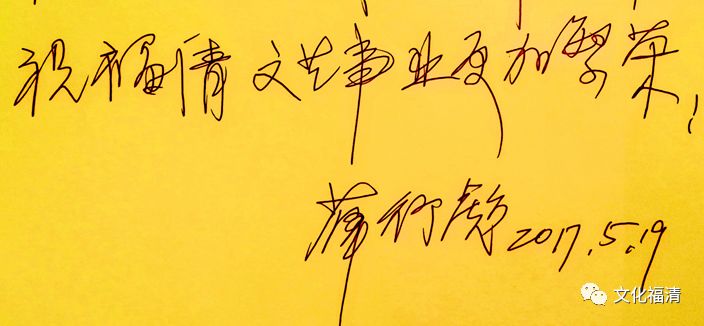 祝福清文艺事业更加繁荣！
2017.5.19
文化福清